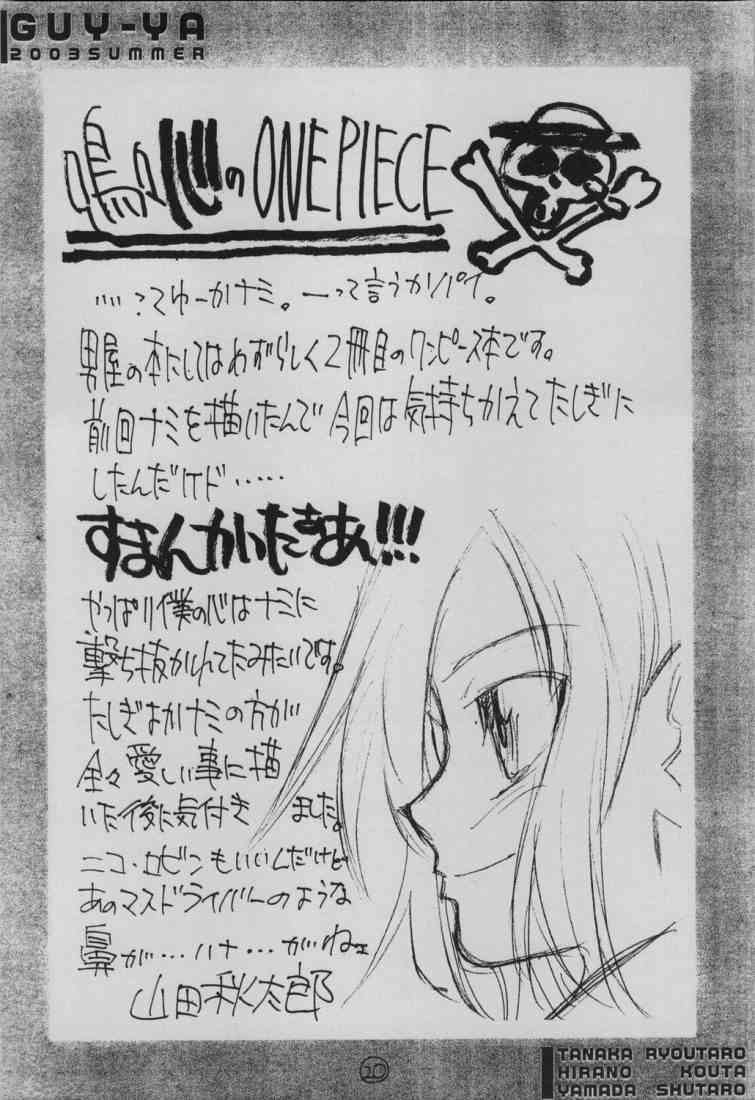 GUY-YA
2003SUMMER
鳴心のONE PIECE
……?てゆーかナミ。ーって言うかパイ。
男屋の本にしてはめずらしく2冊目のワンピース本です。
前回ナミを描いたんで今回は気持ちかえてたしぎに
したんだけド……
すまんかいたきあ!!!
やっぱり僕の心はナミに
撃ち抜かれてたみたいです。
たしぎよかナミの方が
全々愛しい事に描
いた後に気付きました。
ニコ・ロビンもいいんだけど
あのマスドライバーのような
鼻が…ハナ…がねェ
山田秋太郎
20
TANAKA RYOUTARO
HIRANO KOUTA
YAMADA SHUTARO